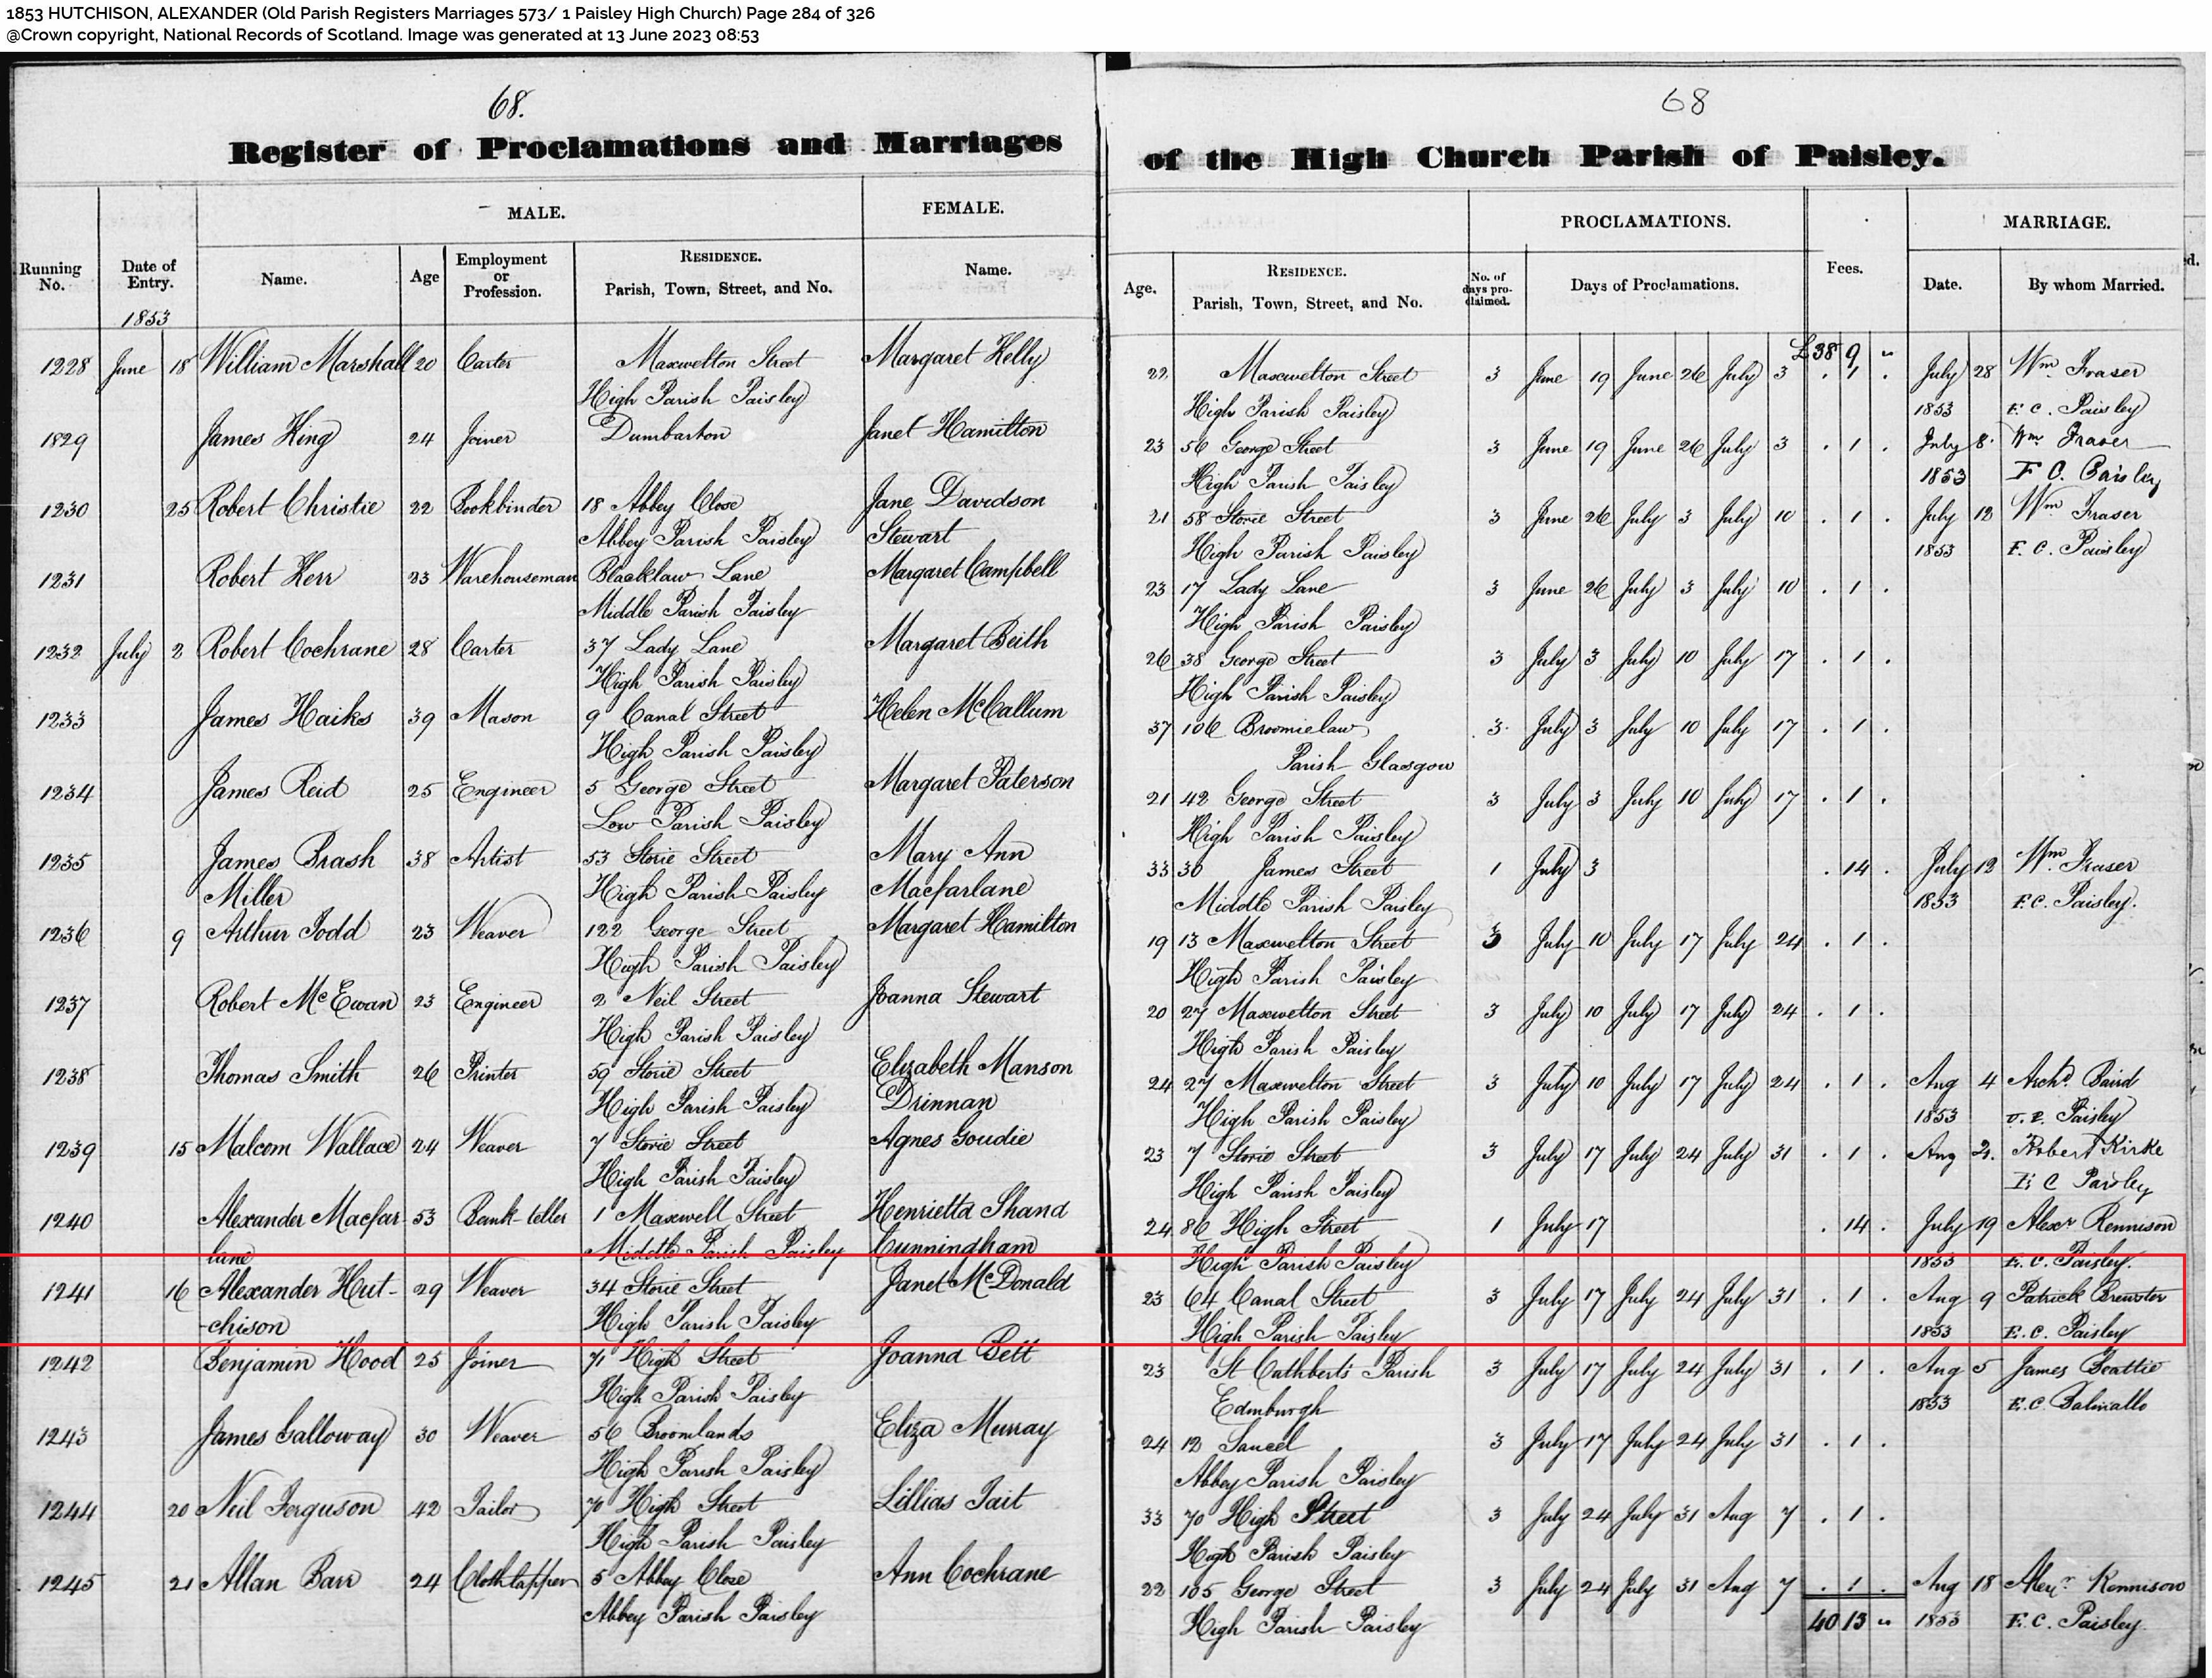 1853 HUTCHISON, ALEXANDER (Old Parish Registers Marriages 573/ 1 Paisley High Church) Page 284 of 326
@Crown copyright, National Records of Scotland. Image was generated at 13 June 2023 08:53
68. 68
Register of Proclamations and Marriages of the High Church Parish of Paisley.
MALE. FEMALE. PROCLAMATIONS. MARRIAGE.
Running No. Date of Entry. Name. Age Employment or Profession. RESIDENCE. Parish, Town, Street, and No. Name. Age. RESIDENCE. Parish, Town, Street, and No. No. of days proclaimed. Days of Proclamations. Fees. Date. By whom Married.
1853
£38 9 "
1228 June 18 William Marshall 20 Carter Maxwelton Street Margaret Kelly 22 Maxwelton Street 3 June 19 June 26 July 3 . 1 . July 28 Wm Fraser
High Parish Paisley High Parish Paisley 1853 F.C. Paisley
1829 James King 24 Joiner Dumbarton Janet Hamilton 23 56 George Street 3 June 19 June 26 July 3 . 1 . July 8. Wm Fraser
High Parish Paisley 1853 F C. Paisley
1230 25 Robert Christie 22 Bookbinder 18 Abbey Close Jane Davidson 21 58 Storie Street 3 June 26 July 3 July 10 . 1 . July 12 Wm Fraser
Abbey Parish Paisley Stewart High Parish Paisley 1853 F.C. Paisley
1231 Robert Kerr 23 Warehouseman Blacklaw Lane Margaret Campbell 23 17 Lady Lane 3 June 26 July 3 July 10 . 1 .
Middle Parish Paisley High Parish Paisley
1232 July 2 Robert Cochrane 28 Carter 37 Lady Lane Margaret Beith 26 38 George Street 3 July 3 July 10 July 17 . 1 .
High Parish Paisley High Parish Paisley
1233 James Haiks 39 Mason 9 Canal Street Helen McCallum 37 106 Broomielaw 3. July 3 July 10 July 17 . 1 .
High Parish Paisley Parish Glasgow
1234 James Reid 25 Engineer 5 George Street Margaret Paterson 21 42 George Street 3 July 3 July 10 July 17 . 1 .
Low Parish Paisley High Parish Paisley
1235 James Brash 38 Artist 53 Storie Street Mary Ann 33 30 James Street 1 July 3 . 14 . July 12 Wm Fraser
Miller High Parish Paisley Macfarlane Middle Parish Paisley 1853 F.C. Paisley.
1236 9 Arthur Todd 23 Weaver 122 George Street Margaret Hamilton 19 13 Maxwelton Street 3 July 10 July 17 July 24 . 1 .
High Parish Paisley High Parish Paisley
1237 Robert McEwan 23 Engineer 2 Neil Street Joanna Stewart 20 27 Maxwelton Street 3 July 10 July 17 July 24 . 1 .
High Parish Paisley High Parish Paisley
1238 Thomas Smith 26 Printer 59 Storie Street Elizabeth Manson 24 27 Maxwelton Street 3 July 10 July 17 July 24 . 1 . Aug 4 Archd. Baird
High Parish Paisley Drinnan High Parish Paisley 1853 U.P. Paisley
1239 15 Malcom Wallace 24 Weaver 7 Storie Street Agnes Goudie 23 7 Storie Street 3 July 17 July 24 July 31 . 1 . Aug 2. Robert Kirke
High Parish Paisley High Parish Paisley E C Paisley
1240 Alexander Macfar- 53 Bank teller 1 Maxwell Street Henrietta Shand 24 86 High Street 1 July 17 . 14 . July 19 Alexr Rennison
lane Middle Parish Paisley Cunningham High Parish Paisley 1853 E.C. Paisley.
1241 16 Alexander Hut- 29 Weaver 34 Storie Street Janet McDonald 23 64 Canal Street 3 July 17 July 24 July 31 . 1 . Aug 9 Patrick Brewster
-chison High Parish Paisley High Parish Paisley 1853 E.C. Paisley
1242 Benjamin Hood 25 Joiner 71 High Street Joanna Bett 23 St Cuthberts Parish 3 July 17 July 24 July 31 . 1 . Aug 5 James Beattie
High Parish Paisley Edinburgh 1853 E.C.
1243 James Galloway 30 Weaver 56 Broomlands Eliza Murray 24 12 Saucel 3 July 17 July 24 July 31 . 1 .
High Parish Paisley Abbey Parish Paisley
1244 20 Neil Ferguson 42 Tailor 70 High Street Lillias Tait 33 70 High Street 3 July 24 July 31 Aug 7 . 1 .
High Parish Paisley High Parish Paisley
1245 21 Allan Barr 24 Clothlapper 5 Abbey Close Ann Cochrane 22 105 George Street 3 July 24 July 31 Aug 7 . 1 . Aug 18 Alexr. Rennison
Abbey Parish Paisley High Parish Paisley 40 13 " 1853 E.C. Paisley.